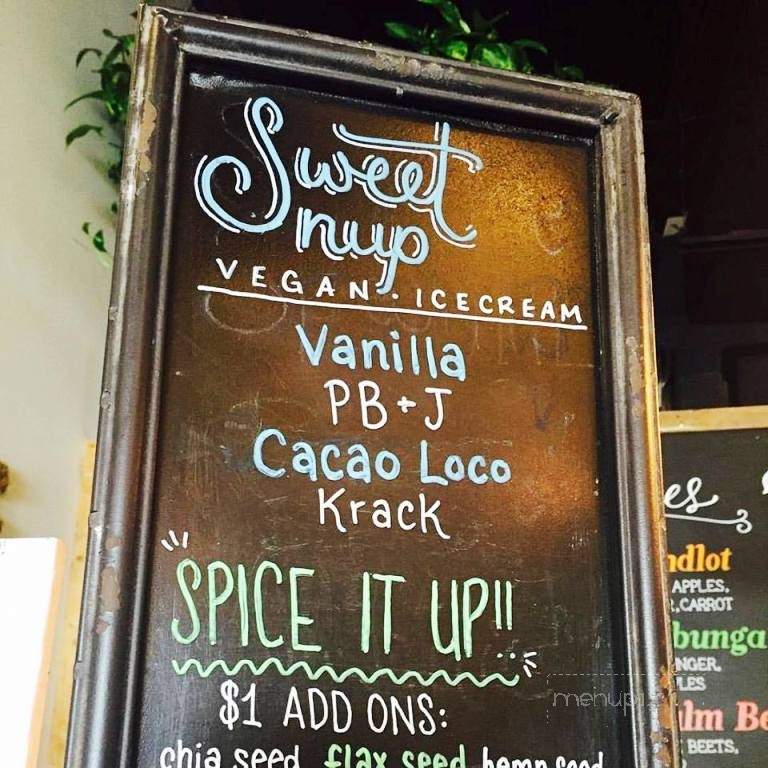 Sweet
nup
VEGAN · ICECREAM
Vanilla
PB+J
Cacao Loco
Krack
SPICE IT UP!!
$1 ADD ONS:
chia seed flax seed hemp seed
es
ndlot
APPLES,
CARROT
bunga
NGER,
LES
lm Be
BEETS,
menupix